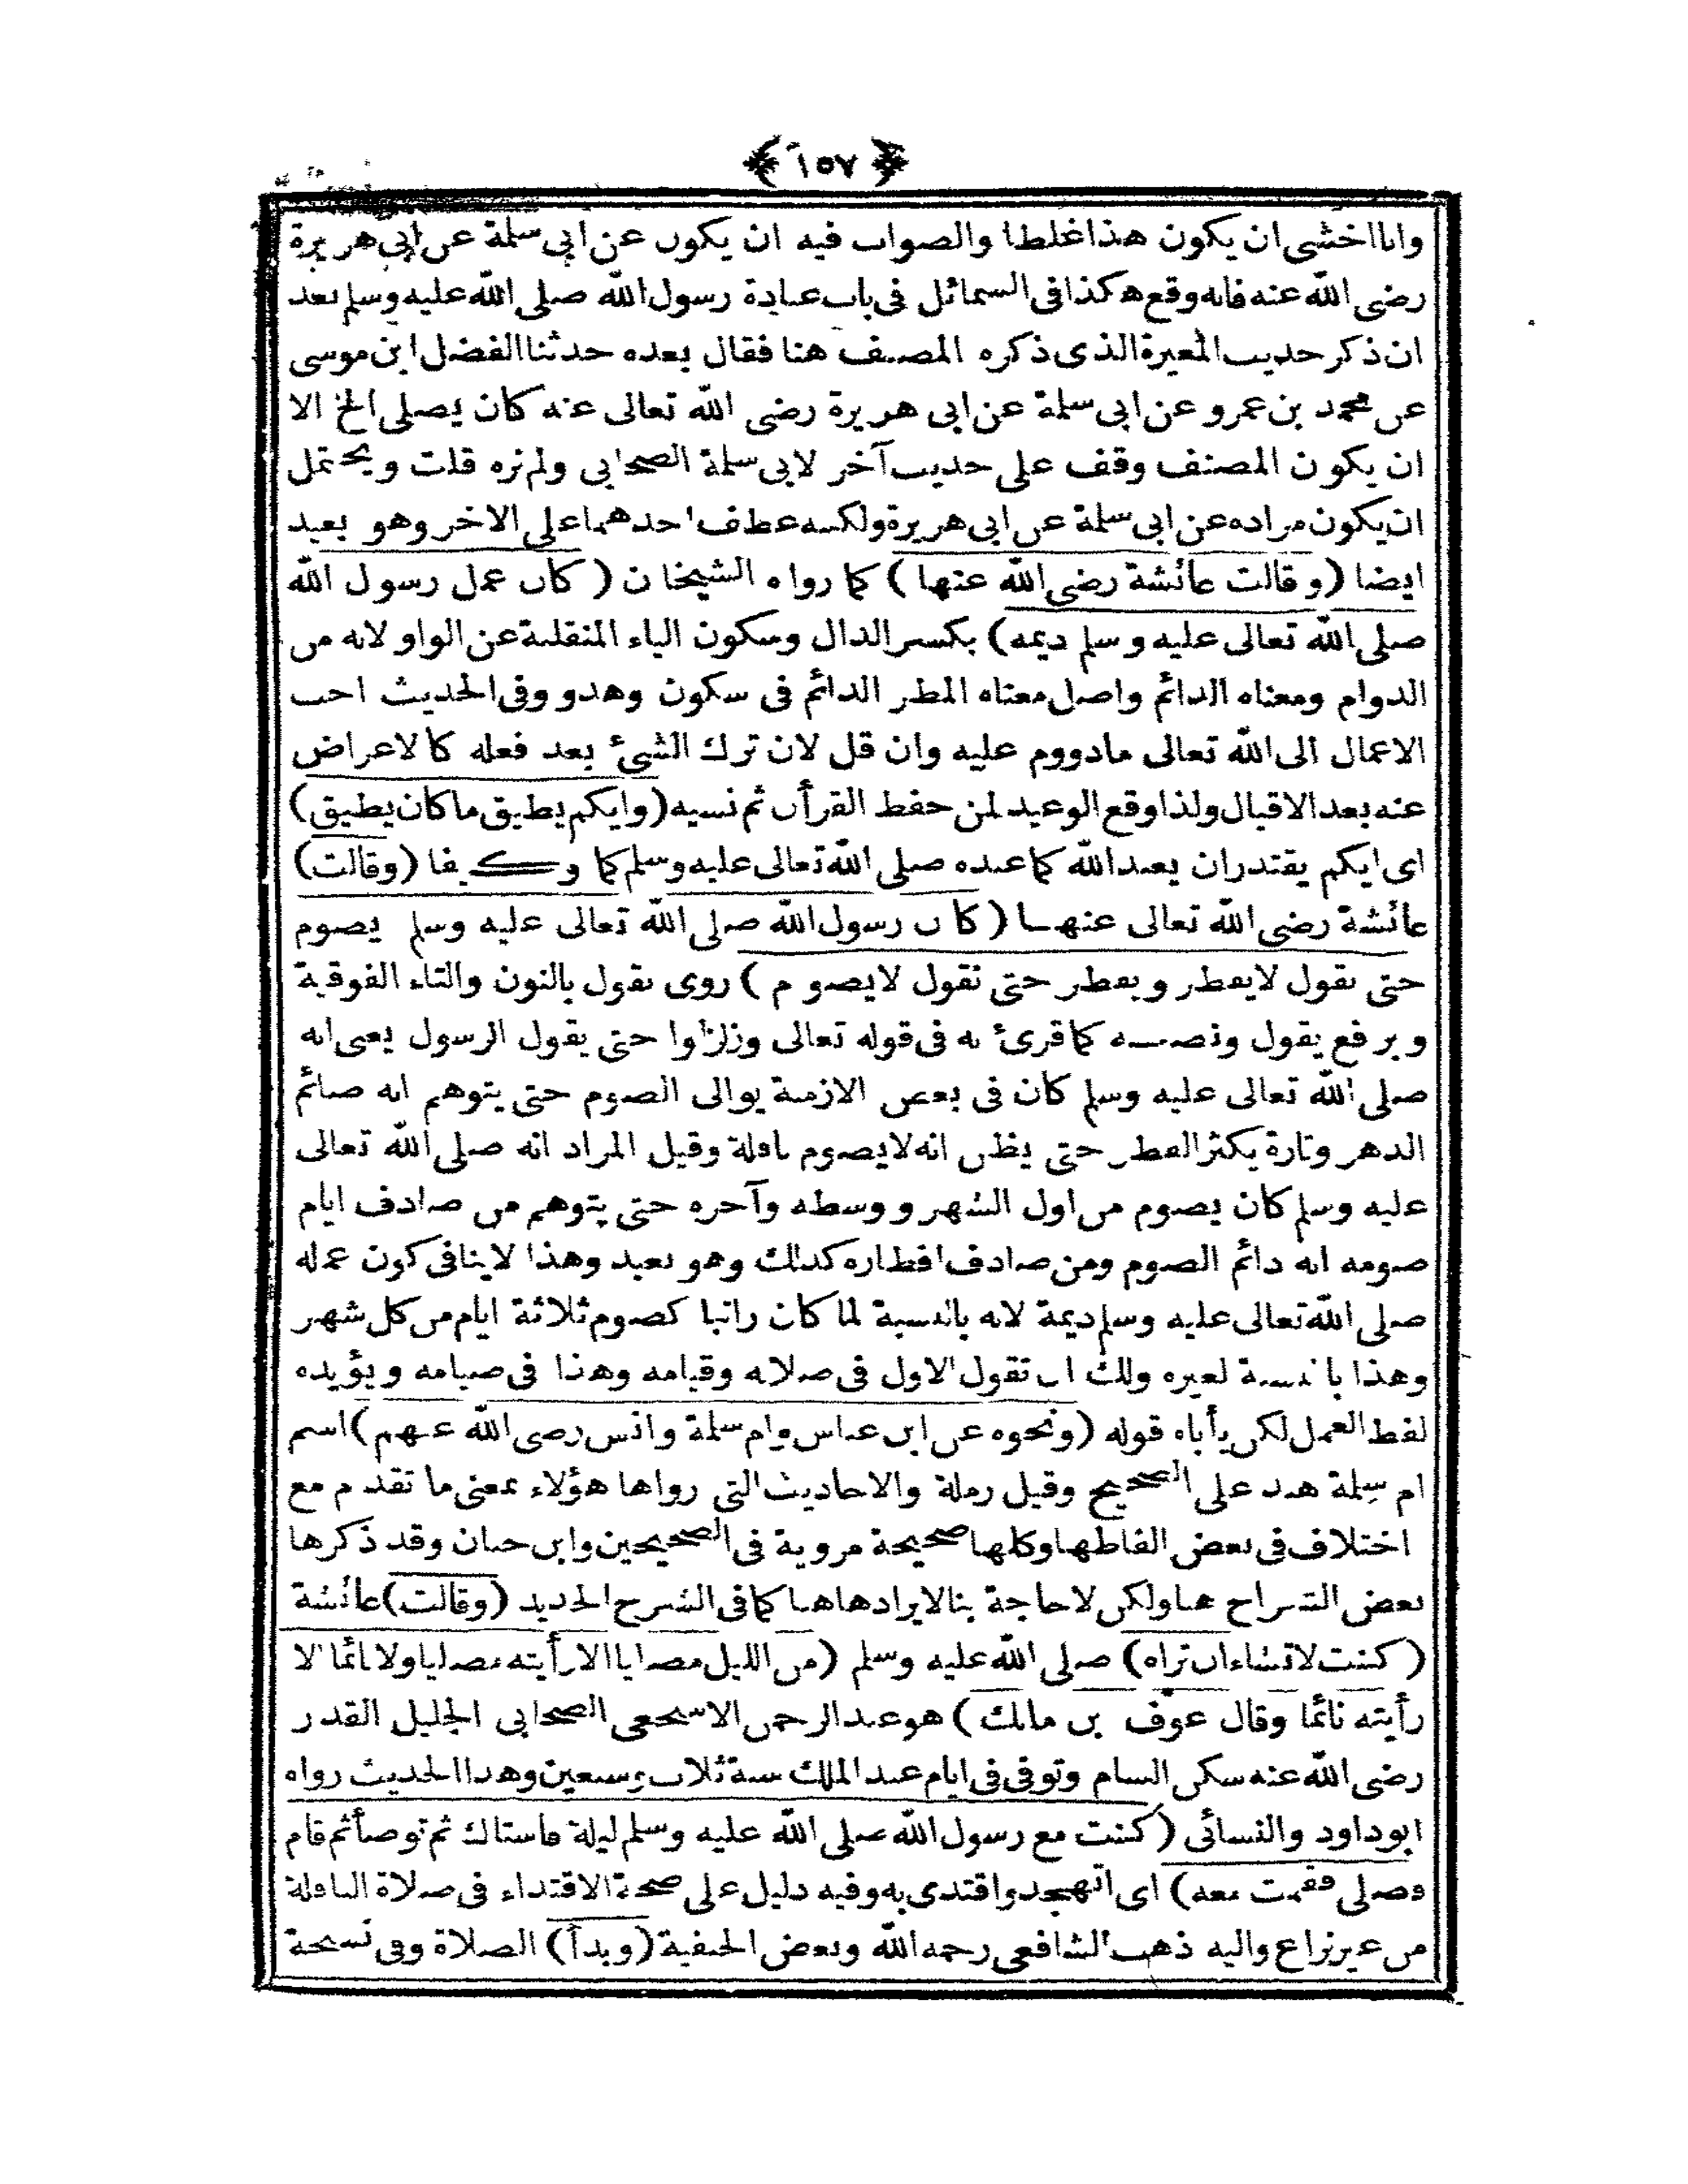 ﴿ ١٥٧ ﴾
وانا اخشى ان يكون هذا غلطا والصواب فيه ان يكون عن ابى سلمة عن ابى هريرة
رضى الله عنه فانه وقع هكذا فى الشمائل فى باب عبادة رسول الله صلى الله عليه وسلم بعد
ان ذكر حديث المغيرة الذى ذكره المصنف هنا فقال بعده حدثنا الفضل ابن موسى
عن محمد بن عمرو عن ابى سلمة عن ابى هريرة رضى الله تعالى عنه كان يصلى الخ الا
ان يكون المصنف وقف على حديث آخر لابى سلمة الصحابى ولم نره قلت ويحتمل
ان يكون مراده عن ابى سلمة عن ابى هريرة ولكنه عطف احدهما على الاخر وهو بعيد
ايضا (وقالت عائشة رضى الله عنها) كما رواه الشيخان (كان عمل رسول الله
صلى الله تعالى عليه وسلم ديمه) بكسر الدال وسكون الياء المنقلبة عن الواو لانه من
الدوام ومعناه الدائم واصل معناه المطر الدائم فى سكون وهدو وفى الحديث احب
الاعمال الى الله تعالى مادووم عليه وان قل لان ترك الشىء بعد فعله كالاعراض
عنه بعد الاقبال ولذا وقع الوعيد لمن حفظ القرأن ثم نسيه (وايكم يطيق ما كان يطيق)
اى ايكم يقتدر ان يعبد الله كما عبده صلى الله تعالى عليه وسلم كما وكيفا (وقالت)
عائشة رضى الله تعالى عنها (كان رسول الله صلى الله تعالى عليه وسلم يصوم
حتى نقول لايفطر ويفطر حتى نقول لايصوم) روى نقول بالنون والتاء الفوقية
وبرفع يقول ونصبه كما قرئ به فى قوله تعالى وزلزلوا حتى يقول الرسول يعنى انه
صلى الله تعالى عليه وسلم كان فى بعض الازمنة يوالى الصوم حتى يتوهم انه صائم
الدهر وتارة يكثر الفطر حتى يظن انه لايصوم نافلة وقيل المراد انه صلى الله تعالى
عليه وسلم كان يصوم من اول الشهر ووسطه وآخره حتى يتوهم من صادف ايام
صومه انه دائم الصوم ومن صادف افطاره كذلك وهو بعيد وهذا لاينافى كون عمله
صلى الله تعالى عليه وسلم ديمة لانه بالنسبة لما كان راتبا كصوم ثلاثة ايام من كل شهر
وهذا بالنسبة لغيره ولك ان تقول الاول فى صلاته وقيامه وهذا فى صيامه ويؤيده
لفظ العمل لكن يأباه قوله (ونحوه عن ابن عباس وام سلمة وانس رضى الله عنهم) اسم
ام سلمة هند على الصحيح وقيل رملة والاحاديث التى رواها هؤلاء بمعنى ما تقدم مع
اختلاف فى بعض الفاظها وكلها صحيحة مروية فى الصحيحين وابن حبان وقد ذكرها
بعض الشراح هنا ولكن لا حاجة بنا لايرادها هنا كما فى الشرح الجديد (وقالت) عائشة
(كنت لاتشاء ان تراه) صلى الله عليه وسلم (من الليل مصليا الا رأيته مصليا ولا نائما الا
رأيته نائما وقال عوف بن مالك) هو عبد الرحمن الاشجعى الصحابى الجليل القدر
رضى الله عنه سكن الشام وتوفى فى ايام عبد الملك سنة ثلاث وسبعين وهذا الحديث رواه
ابو داود والنسائى (كنت مع رسول الله صلى الله عليه وسلم ليلة فاستاك ثم توضأ ثم قام
وصلى فقمت معه) اى اتهجد واقتدى به وفيه دليل على صحة الاقتداء فى صلاة النافلة
من غير نزاع واليه ذهب الشافعى رحمه الله وبعض الحنفية (وبدأ) الصلاة وفى نسخة